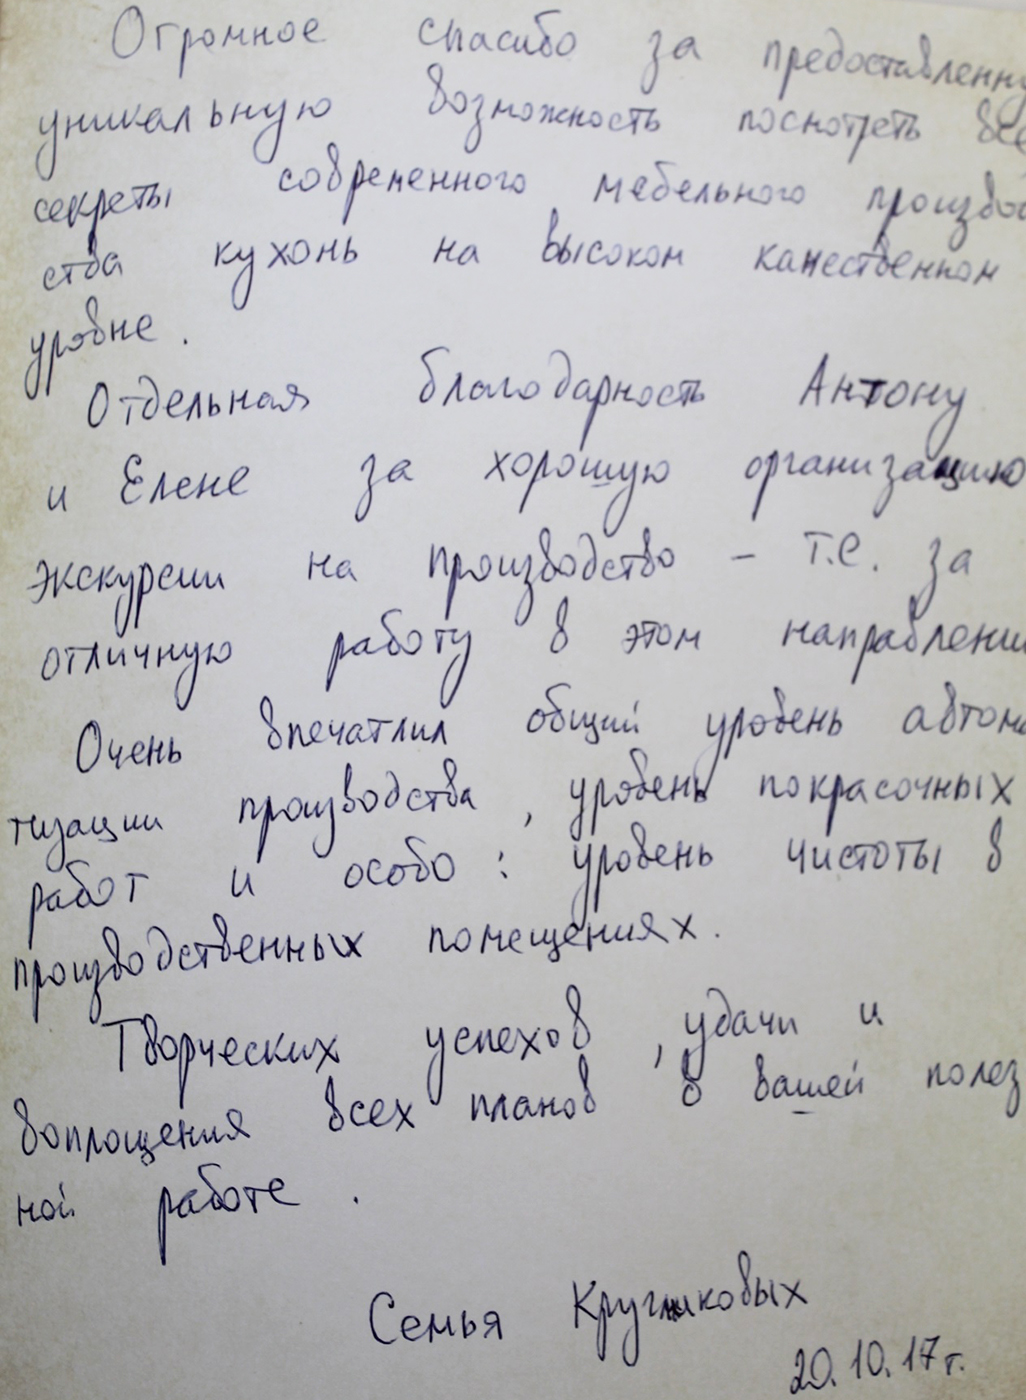 Огромное спасибо за предоставленну
уникальную возможность посмотреть все
секреты современного мебельного произво
ства кухонь на высоком качественном
уровне.
Отдельная благодарность Антону
и Елене за хорошую организацию
экскурсии на производство - т.е. за
отличную работу в этом направлени
Очень впечатлил общий уровень автома
тизации производства, уровень покрасочных
работ и особо: уровень чистоты в
производственных помещениях.
Творческих успехов, удачи и
воплощения всех планов в вашей полез
ной работе.
Семья Кругликовых
20.10.17г.